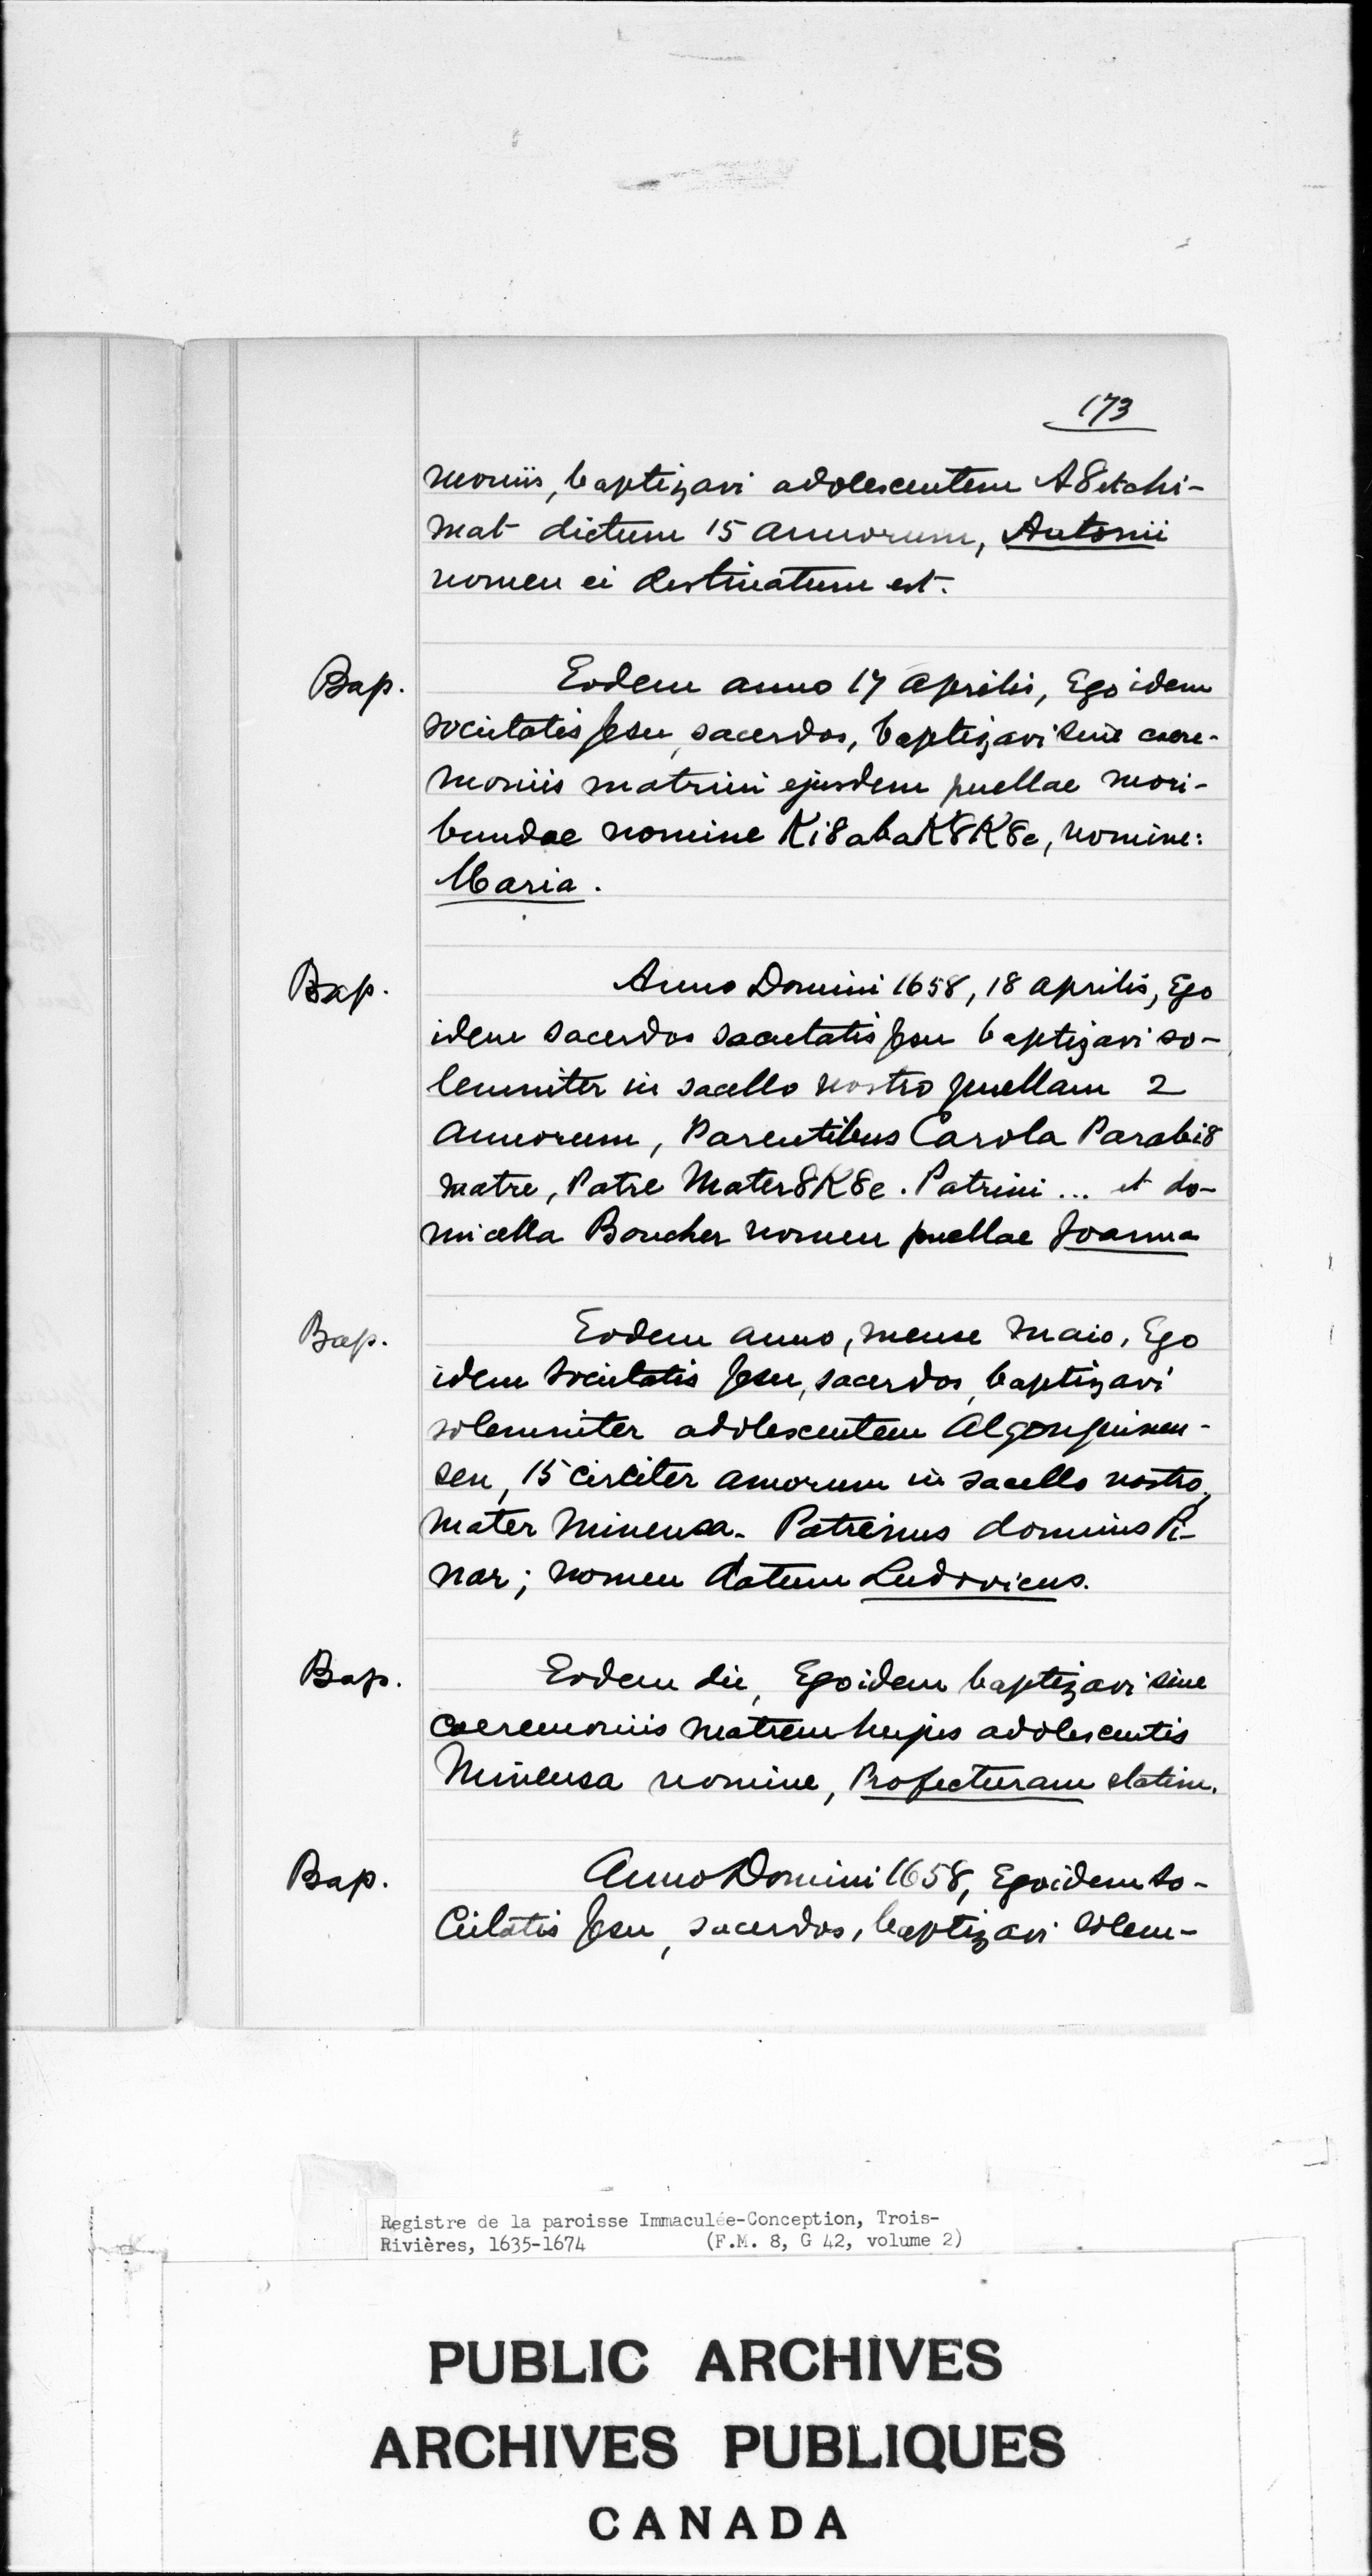 173
moniis, baptizavi adolescentem A8etchi-
mat dictum 15 annorum, Antonii
nomen ei destinatum est.
Bap. Eodem anno 17 Aprilis, Ego idem
societatis Jesu, sacerdos, baptizavi sine caere-
moniis matrini ejusdem puellae mori-
bundae nomine Ki8abaK8K8e, nomine:
Maria.
Bap. Anno Domini 1658, 18 aprilis, Ego
idem sacerdos societatis Jesu baptizavi so-
lemniter in sacello nostro puellam 2
annorum, Parentibus Carola Parabi8
matre, Patre Mater8K8e. Patrini ... et do-
micella Boucher nomen puellae Joanna
Bap. Eodem anno, mense Maio, Ego
idem Societatis Jesu, sacerdos, baptizavi
solemniter adolescentem Algonquinen-
sen, 15 circiter annorum in sacello nostro,
Mater Minensa. Patrinus dominus Pi-
nar; nomen datum Ludovicus.
Bap. Eodem die, Ego idem baptizavi sine
caeremoniis matrem hujus adolescentis
Minensa nomine, Profecturam statim.
Bap. Anno Domini 1658, Ego idem so-
cietatis Jesu, sacerdos, baptizavi solem-
Registre de la paroisse Immaculée-Conception, Trois-
Rivières, 1635-1674 (F.M. 8, G 42, volume 2)
PUBLIC ARCHIVES
ARCHIVES PUBLIQUES
CANADA